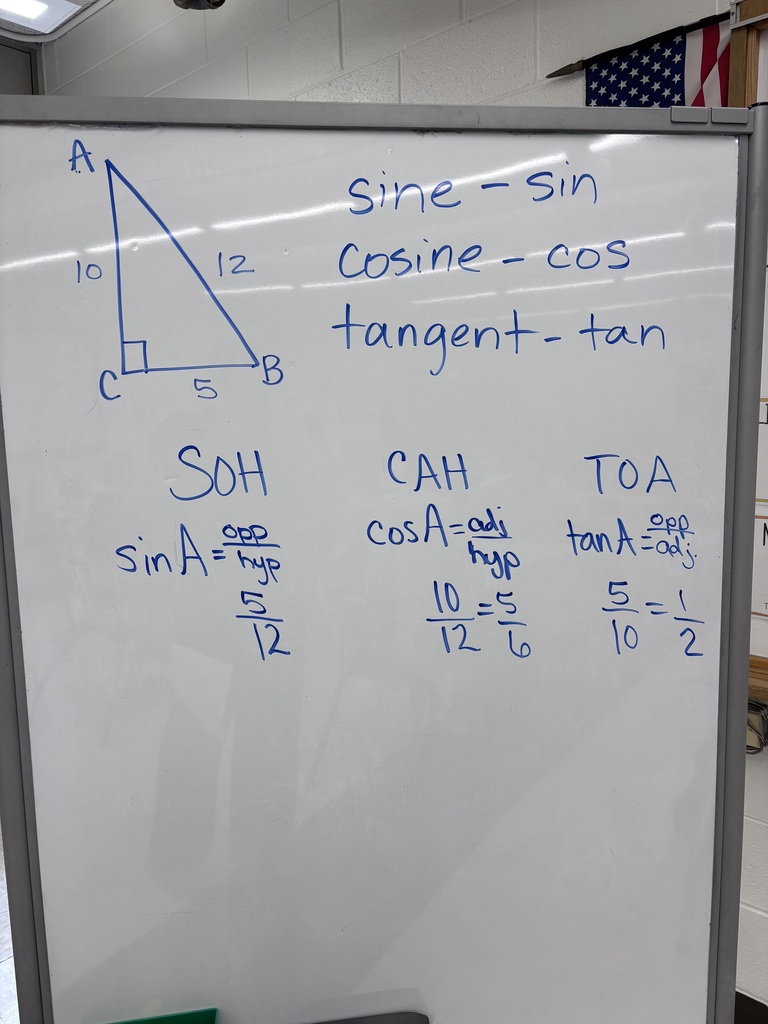 A
10
12
C
5
B
sine - sin
cosine - cos
tangent - tan
SOH
sin A = opp/hyp
5/12
CAH
cos A = adj/hyp
10/12 = 5/6
TOA
tan A = opp/adj.
5/10 = 1/2